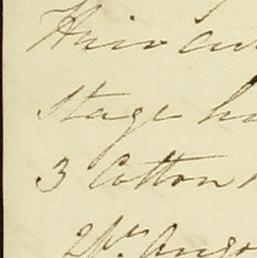 Hair cu
Stage h
3 Cotton
2 Pr. Ango